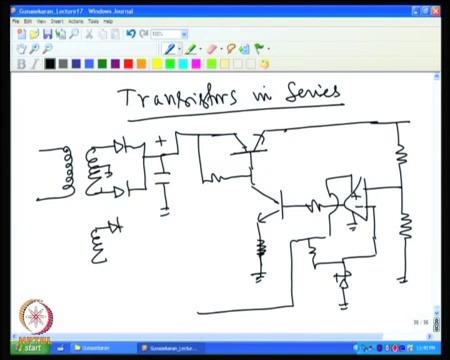 Gunasekaran_Lecture17 - Windows Journal
File Edit View Insert Actions Tools Help
100%
B I
Transistors in Series
+
+
-
NPTEL
start
Gunasekaran
Gunasekaran_Lectur...